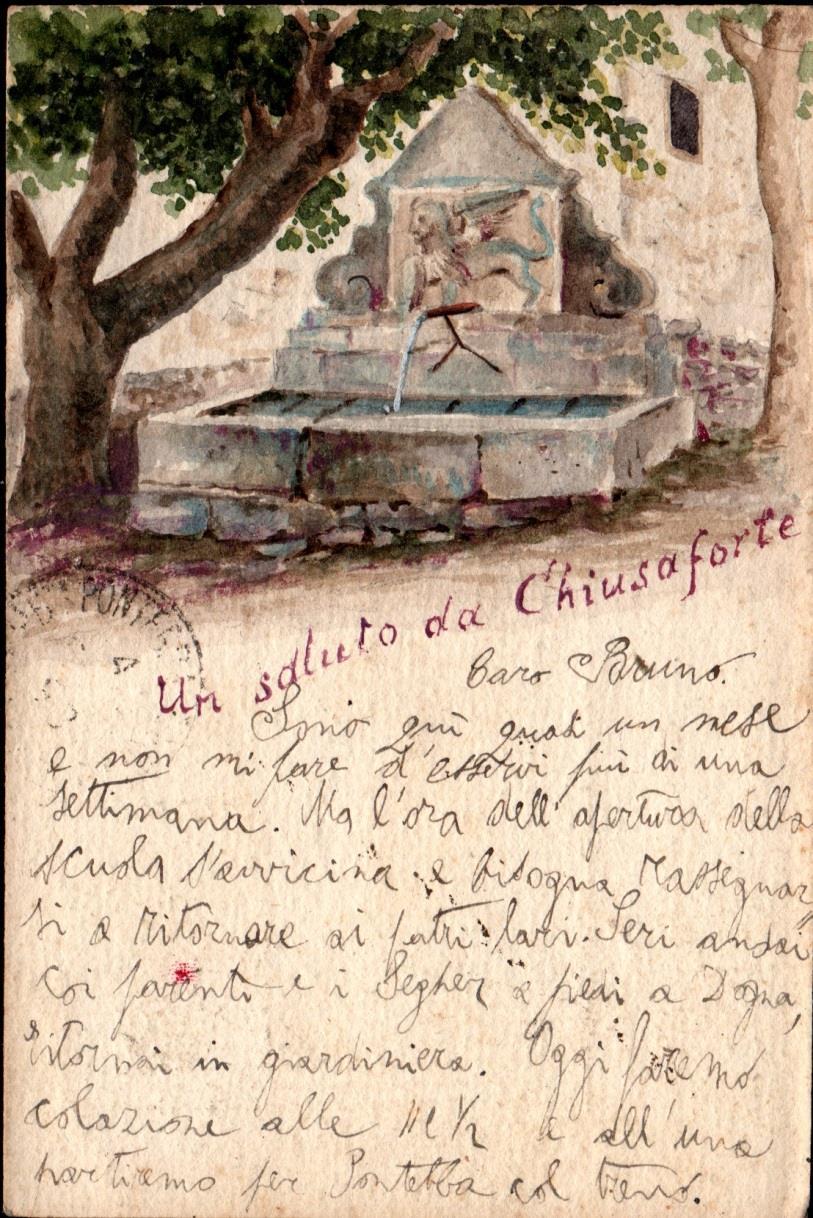 Un saluto da Chiusaforte
PONTE
Caro Bruno.
Sono quì quasi un mese
e non mi pare d'esservi più di una
settimana. Ma l'ora dell'apertura della
scuola s'avvicina e bisogna rassegnar
si a ritornare ai patri lari. Ieri andai
coi parenti e i Segher a piedi a Dogna,
ritornai in giardiniera. Oggi faremo
colazione alle 11 1/2 e all'una
partiremo per Pontebba col treno.